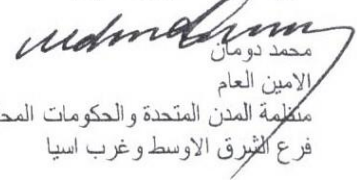 محمد دومان
الامين العام
منظمة المدن المتحدة والحكومات المحـ
فرع الشرق الاوسط وغرب اسيا